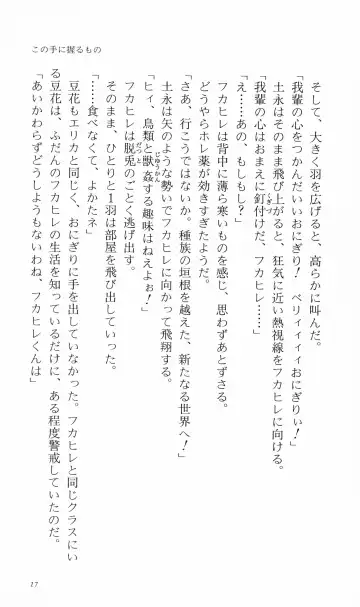 この手に握るもの
そして、大きく羽を広げると、高らかに叫んだ。
「我輩の心をつかんだいいおにぎり！　ベリィィィィおにぎりぃ！」
土永はそのまま飛び上がると、狂気に近い熱視線をフカヒレに向ける。
「我輩の心はおまえに釘付けだ、フカヒレ……」
「え……あの、もしもし？」
フカヒレは背中に薄ら寒いものを感じ、思わずあとずさる。
どうやらホレ薬が効きすぎたようだ。
「さあ、行こうではないか。種族の垣根を越えた、新たなる世界へ！」
土永は矢のような勢いでフカヒレに向かって飛翔する。
「ヒィ、鳥類と獣姦する趣味はねえよぉ！」
フカヒレは脱兎のごとく逃げ出す。
そのまま、ひとりと１羽は部屋を飛び出していった。
「……食べなくて、よかたネ」
豆花もエリカと同じく、おにぎりに手を出していなかった。フカヒレと同じクラスにい
る豆花は、ふだんのフカヒレの生活を知っているだけに、ある程度警戒していたのだ。
「あいかわらずどうしようもないわね、フカヒレくんは」
17